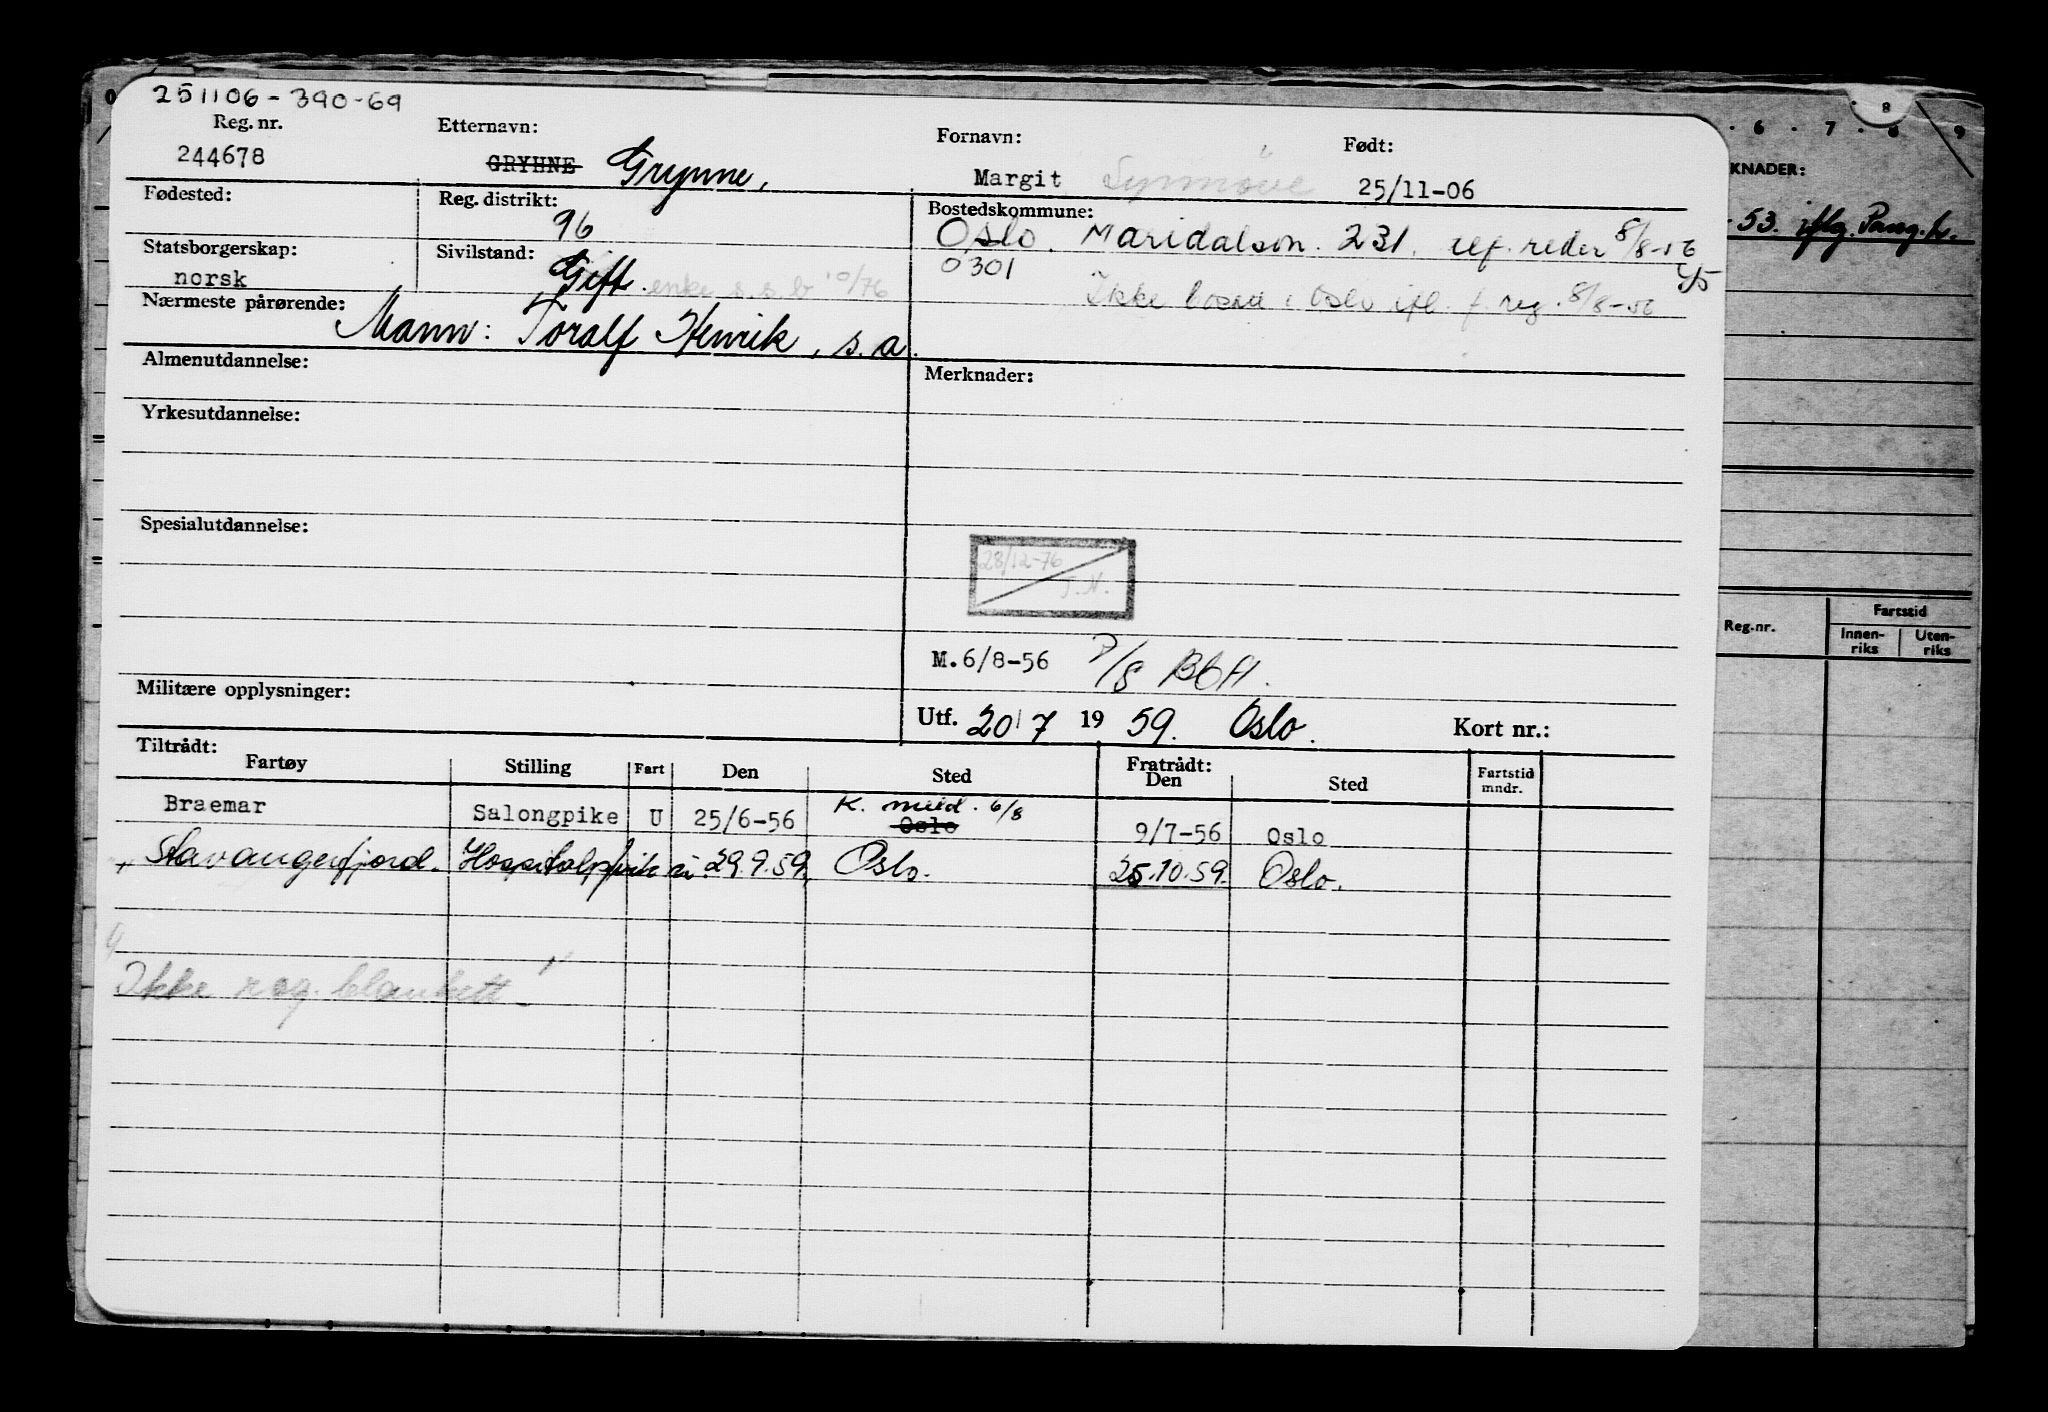 251106-390-69
Reg. nr. Etternavn: Fornavn: Født:
244678 GRYHNE Grynne, Margit Synnöve 25/11-06
Fødested: Reg. distrikt: Bostedskommune:
96 Oslo. Maridalsvn. 231. reder 8/8-56
Statsborgerskap: Sivilstand: 0301
norsk Gift. enke s.s.b 10/76 Ikke bosatt i Oslo ifl. f. reg. 8/8-56
Nærmeste pårørende:
Mann: Toralf Henrik, s.a.
Almenutdannelse: Merknader:
Yrkesutdannelse:
Spesialutdannelse:
28/12-76
T.H.
M.6/8-56
Militære opplysninger:
Utf. 20/7 1959. Oslo. Kort nr.:
Tiltrådt: Fratrådt:
Fartøy Stilling Fart Den Sted Den Sted Fartstid mndr.
Braemar Salongpike U 25/6-56 K. meld. 6/8 Oslo 9/7-56 Oslo
Stavangerfjord. Hospitalpike u. 29.9.59. Oslo. 25.10.59. Oslo.
Ikke reg. blankett
8
6 . 7 . 8 . 9
KNADER:
53. iflg. Pass.k.
Reg.nr. Fartstid
Innen-riks Uten-riks